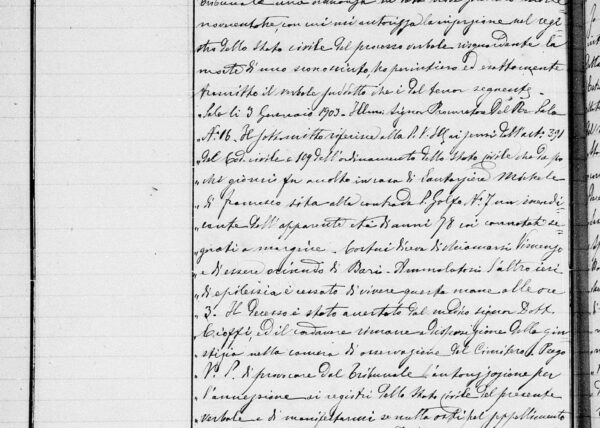 Tribunale
novecentotre, con cui mi autorizza la inserzione nel regi
stro dello Stato civile del processo verbale riguardante la
morte di uno sconosciuto, ho per intiero ed esattamente
trascritto il verbale suddetto che è del tenor seguente.
"Sala li 3 Gennaio 1903. Ill.mo Signor Procuratore Del Re Sala
"N. 16. Il sottoscritto riferisce alla S. V. Ill. ai sensi dell'art. 391
"del Cod. civile e 109 dell'ordinamento dello Stato civile che da po
"chi giorni fu accolto in casa di Michele
"di Francesco sita alla contrada S. Golfo, N. 7 un mendi
"cante dell'apparente età di anni 78 coi connotati se
"gnati a margine. Costui diceva di chiamarsi Vincenzo
"e di essere oriundo di Bari. Ammalatosi l'altro ieri
"di epilessia è cessato di vivere questa mane alle ore
"3. Il decesso è stato accertato dal medico signor Dott.
"Cioffi, ed il cadavere rimane a disposizione della giu
"stizia nella camera di osservazione del Cimitero. Prego
"V. S. di provocare dal Tribunale l'autorizzazione per
"l'annotazione ai registri dello Stato Civile del presente
"verbale e di manifestarmi se nulla osti pel seppellimento